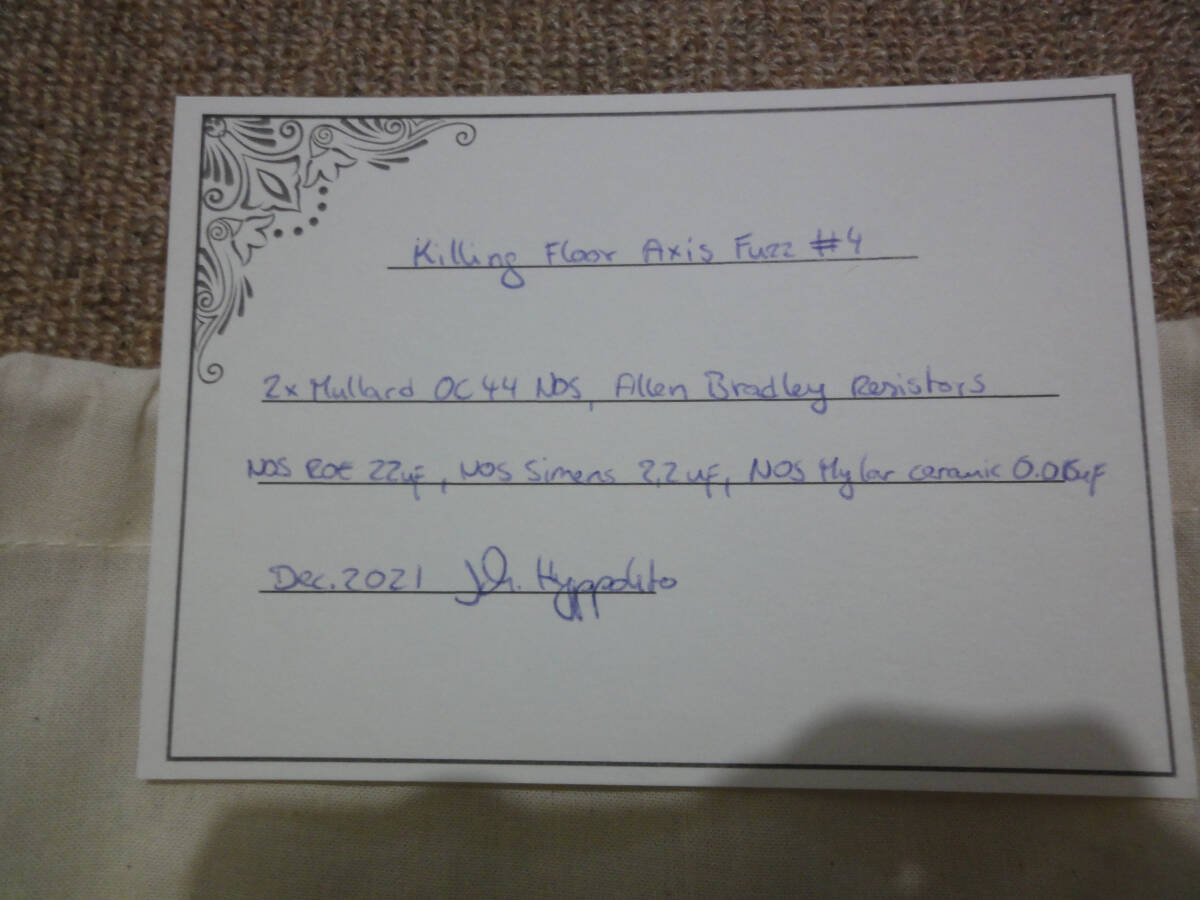 Killing Floor Axis Fuzz #4
2x Mullard OC44 NOS, Allen Bradley Resistors
NOS ROE 22uF, NOS Simens 2,2uF, NOS Mylar ceramic
Dec. 2021 Hyppolito